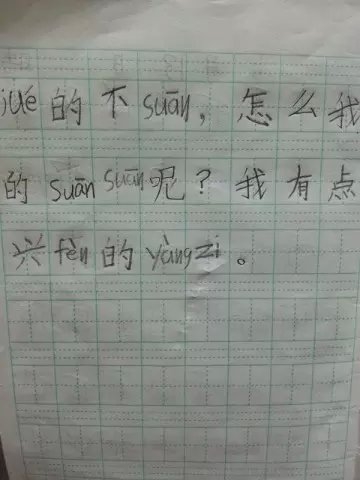 jué的不suān，怎么我
的suān suān呢？我有点
兴fèn的yàngzi。